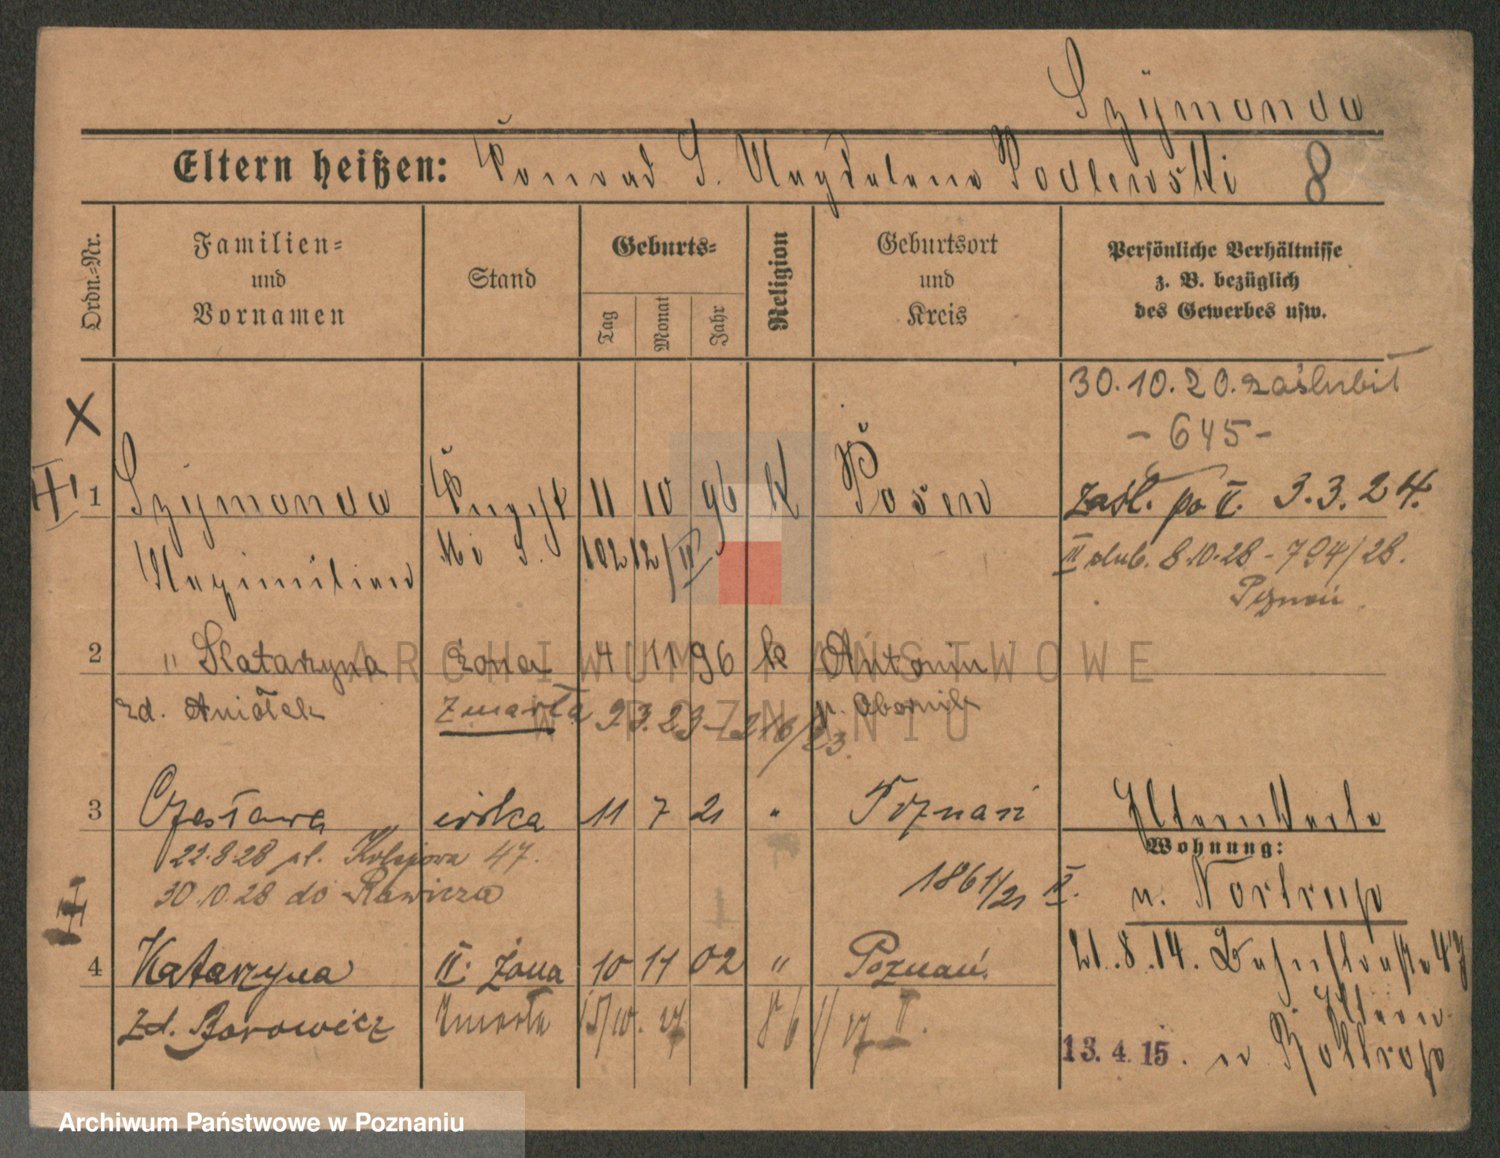 Szÿmanda
Eltern heißen: Konrad S. Magdalena Podlewski 8
Ordn.-Nr.
Familien-
und
Vornamen
Stand
Geburts-
Tag
Monat
Jahr
Religion
Geburtsort
und
Kreis
Persönliche Verhältnisse
z. B. bezüglich
des Gewerbes usw.
30.10.20. zaślubił
- 645 -
X
1 Szÿmanda 11 10 96 k Posen
zaśl. po II. 3.3.24.
Maximilian
II ślub. 8.10.28 - 794/28.
Poznań
2 " Katarzyna żona 4 11 96 k Antonin
zd. Aniołek zmarła 9 3. 23 - 216/23 p. Obornik
3 Czesława córka 11 7 21 " Poznań
22.8.28 pl. Kolejowa 47.
30.10.28 do Rawicza
1861/21 II.
Wohnung:
n. Nortrup
II
4 Katarzyna II. żona 10 11 02 " Poznań
zd. Borowicz zmarła
21.8.14.
Eltern
13.4.15. n Bottrop
ARCHIWUM PAŃSTWOWE
W POZNANIU
Archiwum Państwowe w Poznaniu